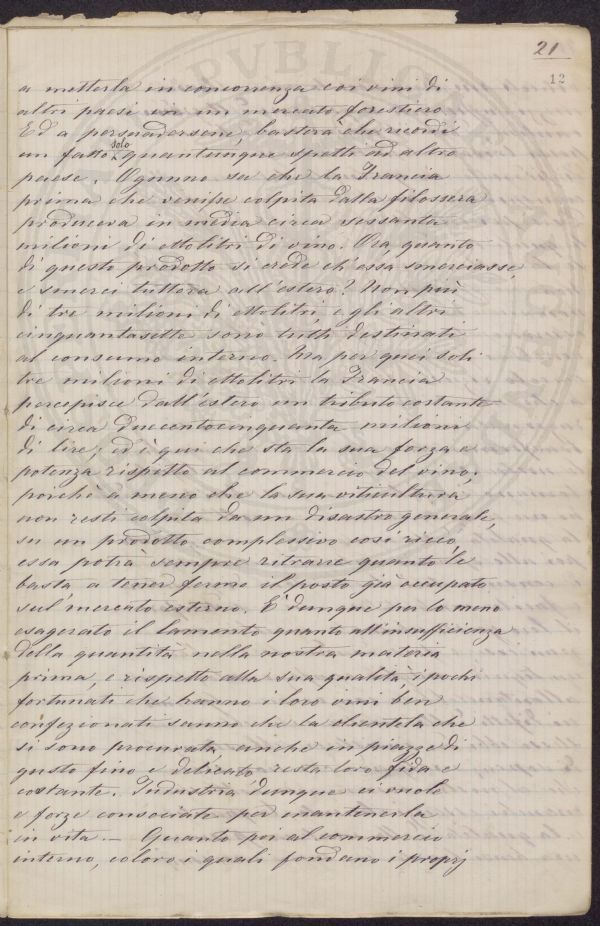 21
12
a metterla in concorrenza coi vini di
altri paesi in un mercato forestiero
Ed a persuadersene, basterà che ricordi
un fatto solo quantunque spetti ad altro
paese. Ognuno sa che la Francia
prima che venisse colpita dalla filossera
produceva in media circa sessanta
milioni di ettolitri di vino. Ora, quanto
di questo prodotto si crede ch'essa smerciasse,
e smerci tuttora all'estero? Non più
di tre milioni di ettolitri, e gli altri
cinquantasette sono tutti destinati
al consumo interno. Ma per quei soli
tre milioni di ettolitri la Francia
percepisce dall'estero un tributo costante
di circa duecentocinquanta milioni
di lire; ed è qui che sta la sua forza e
potenza rispetto al commercio del vino;
perchè a meno che la sua viticultura
non resti colpita da un disastro generale,
su un prodotto complessivo così ricco,
essa potrà sempre ritrarre quanto le
basta a tener fermo il posto già occupato
sul mercato esterno. È dunque per lo meno
esagerato il lamento quanto all'insufficienza
della quantità nella nostra materia
prima, e rispetto alla sua qualità, i pochi
fortunati che hanno i loro vini ben
confezionati sanno che la clientela che
si sono procurata, anche in piazze di
gusto fino e delicato, resta loro fida e
costante. Industria dunque ci vuole
e forze consociate per mantenerla
in vita. — Quanto poi al commercio
interno, coloro i quali fondano i proprj